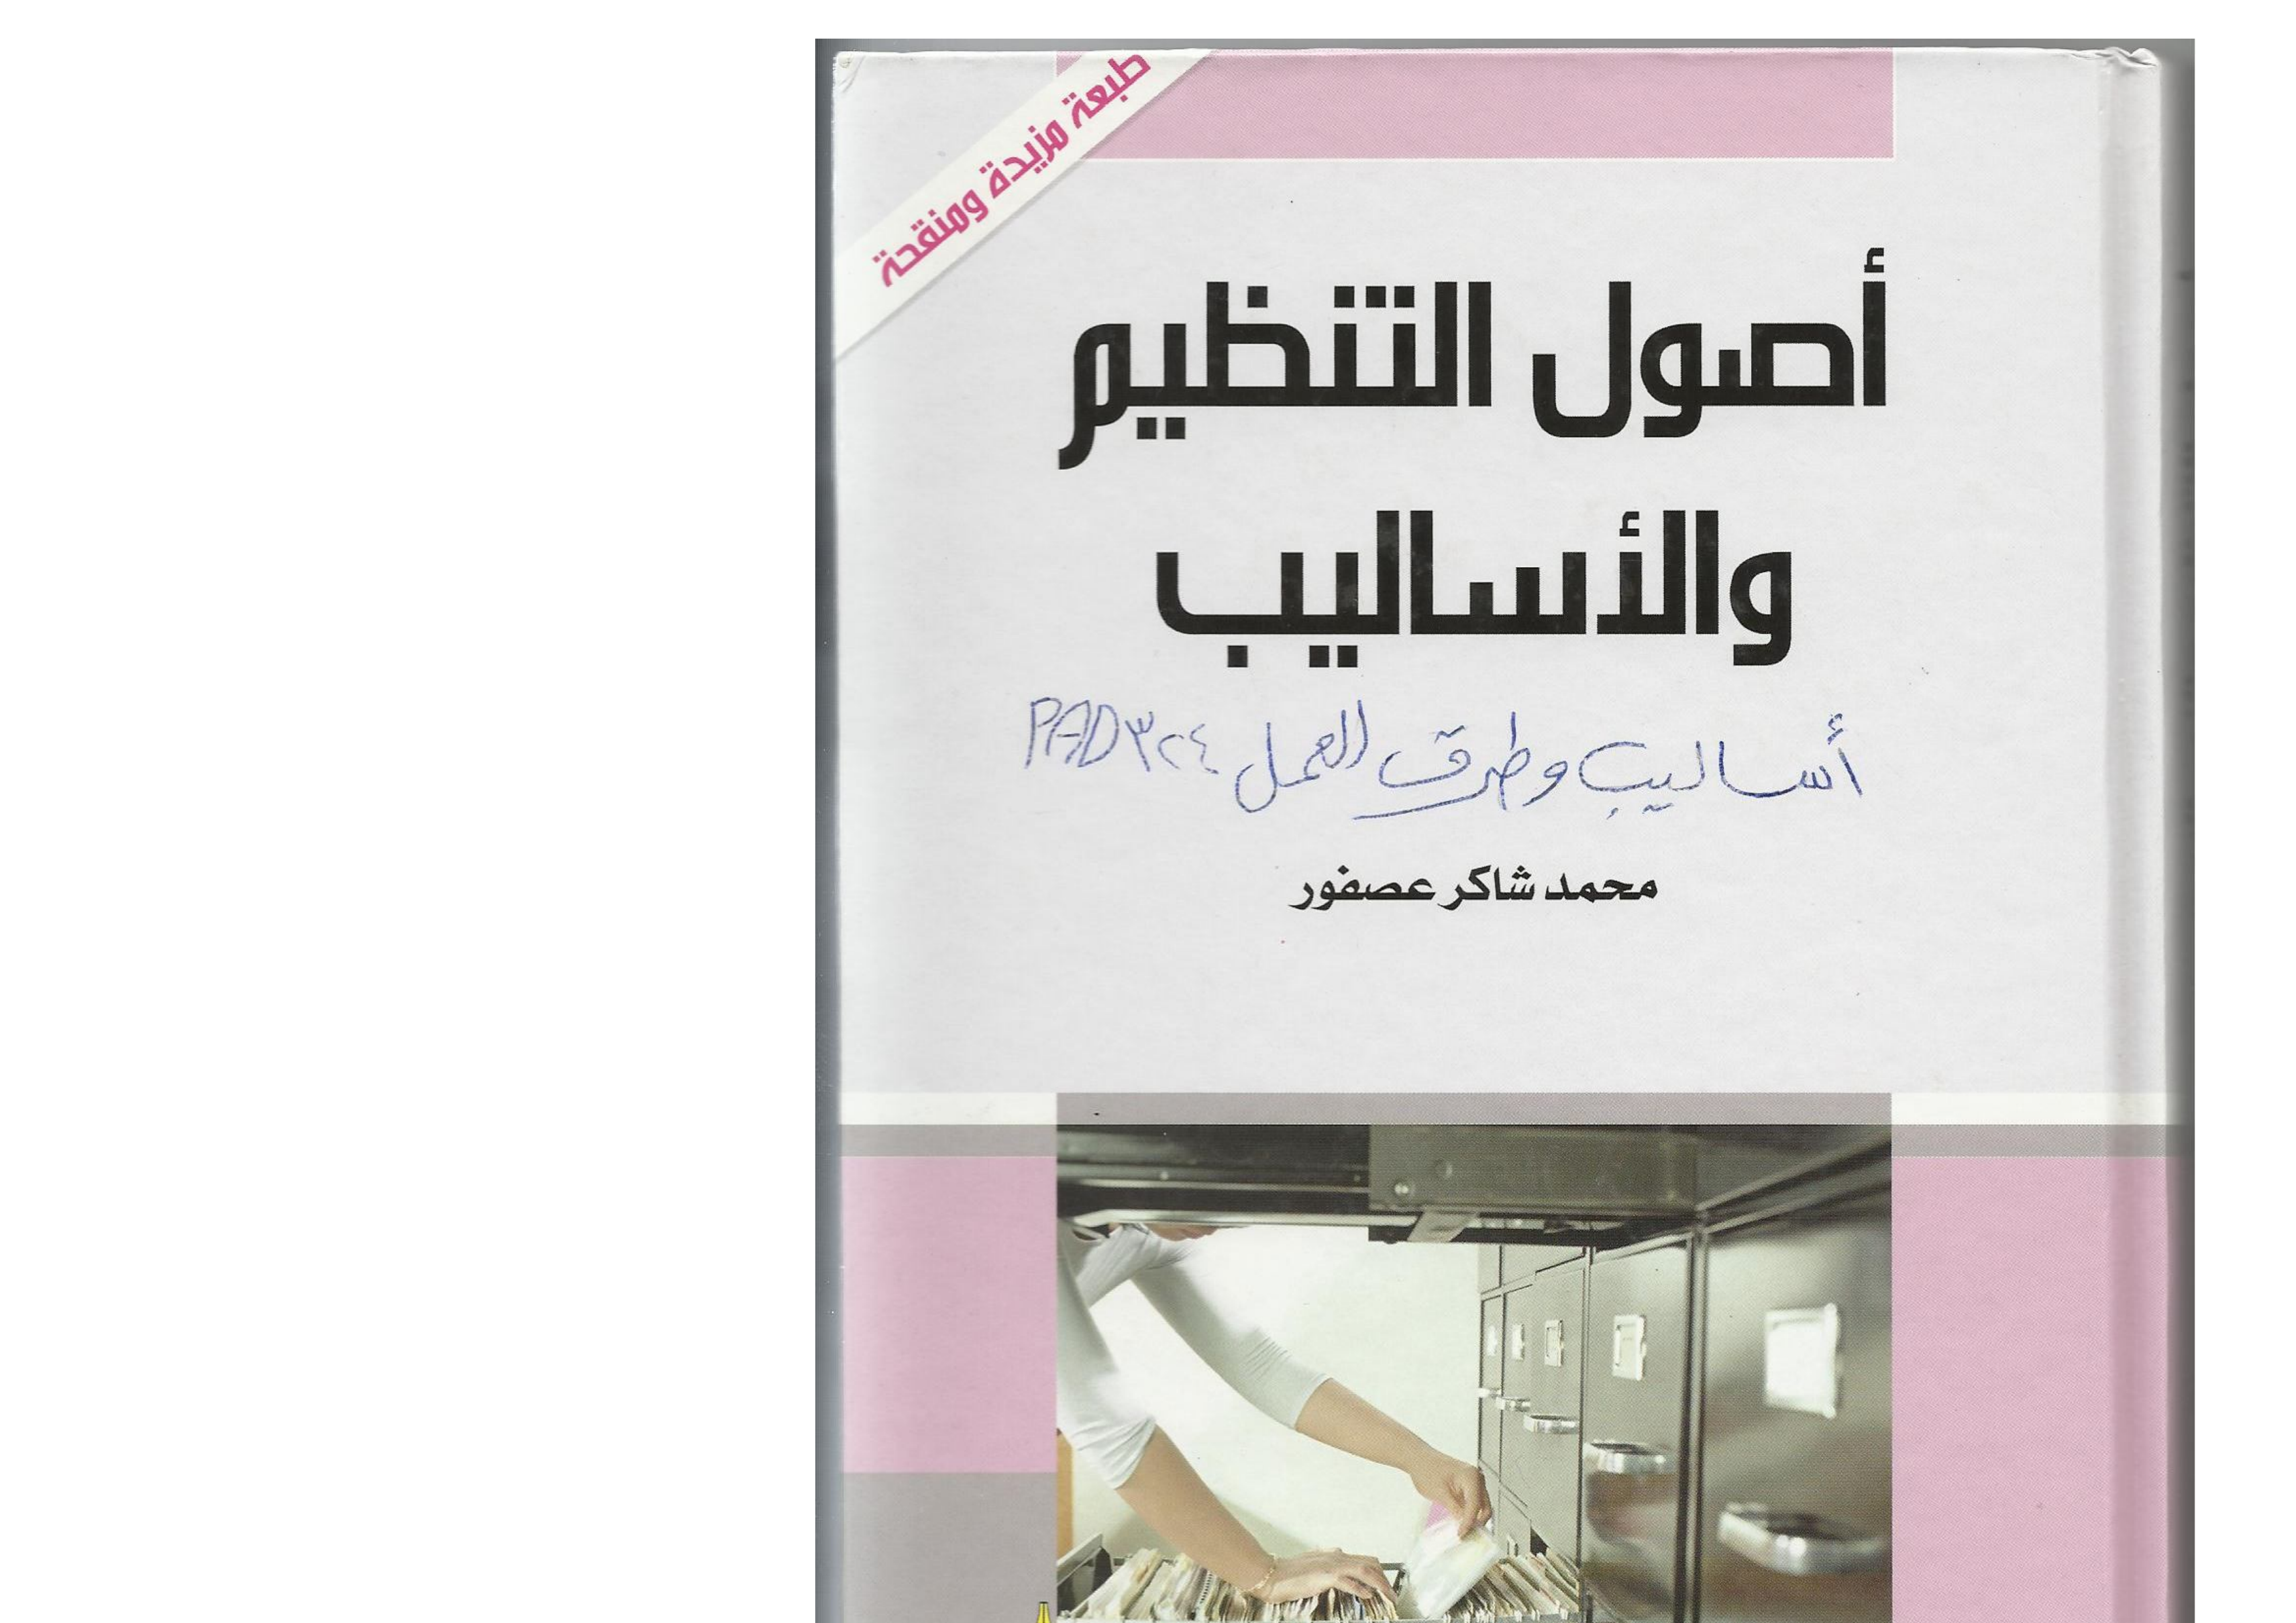 طبعة مزيدة ومنقحة
أصول التنظيم
والأساليب
أساليب وطرق العمل PAD ٣٢٤
محمد شاكر عصفور